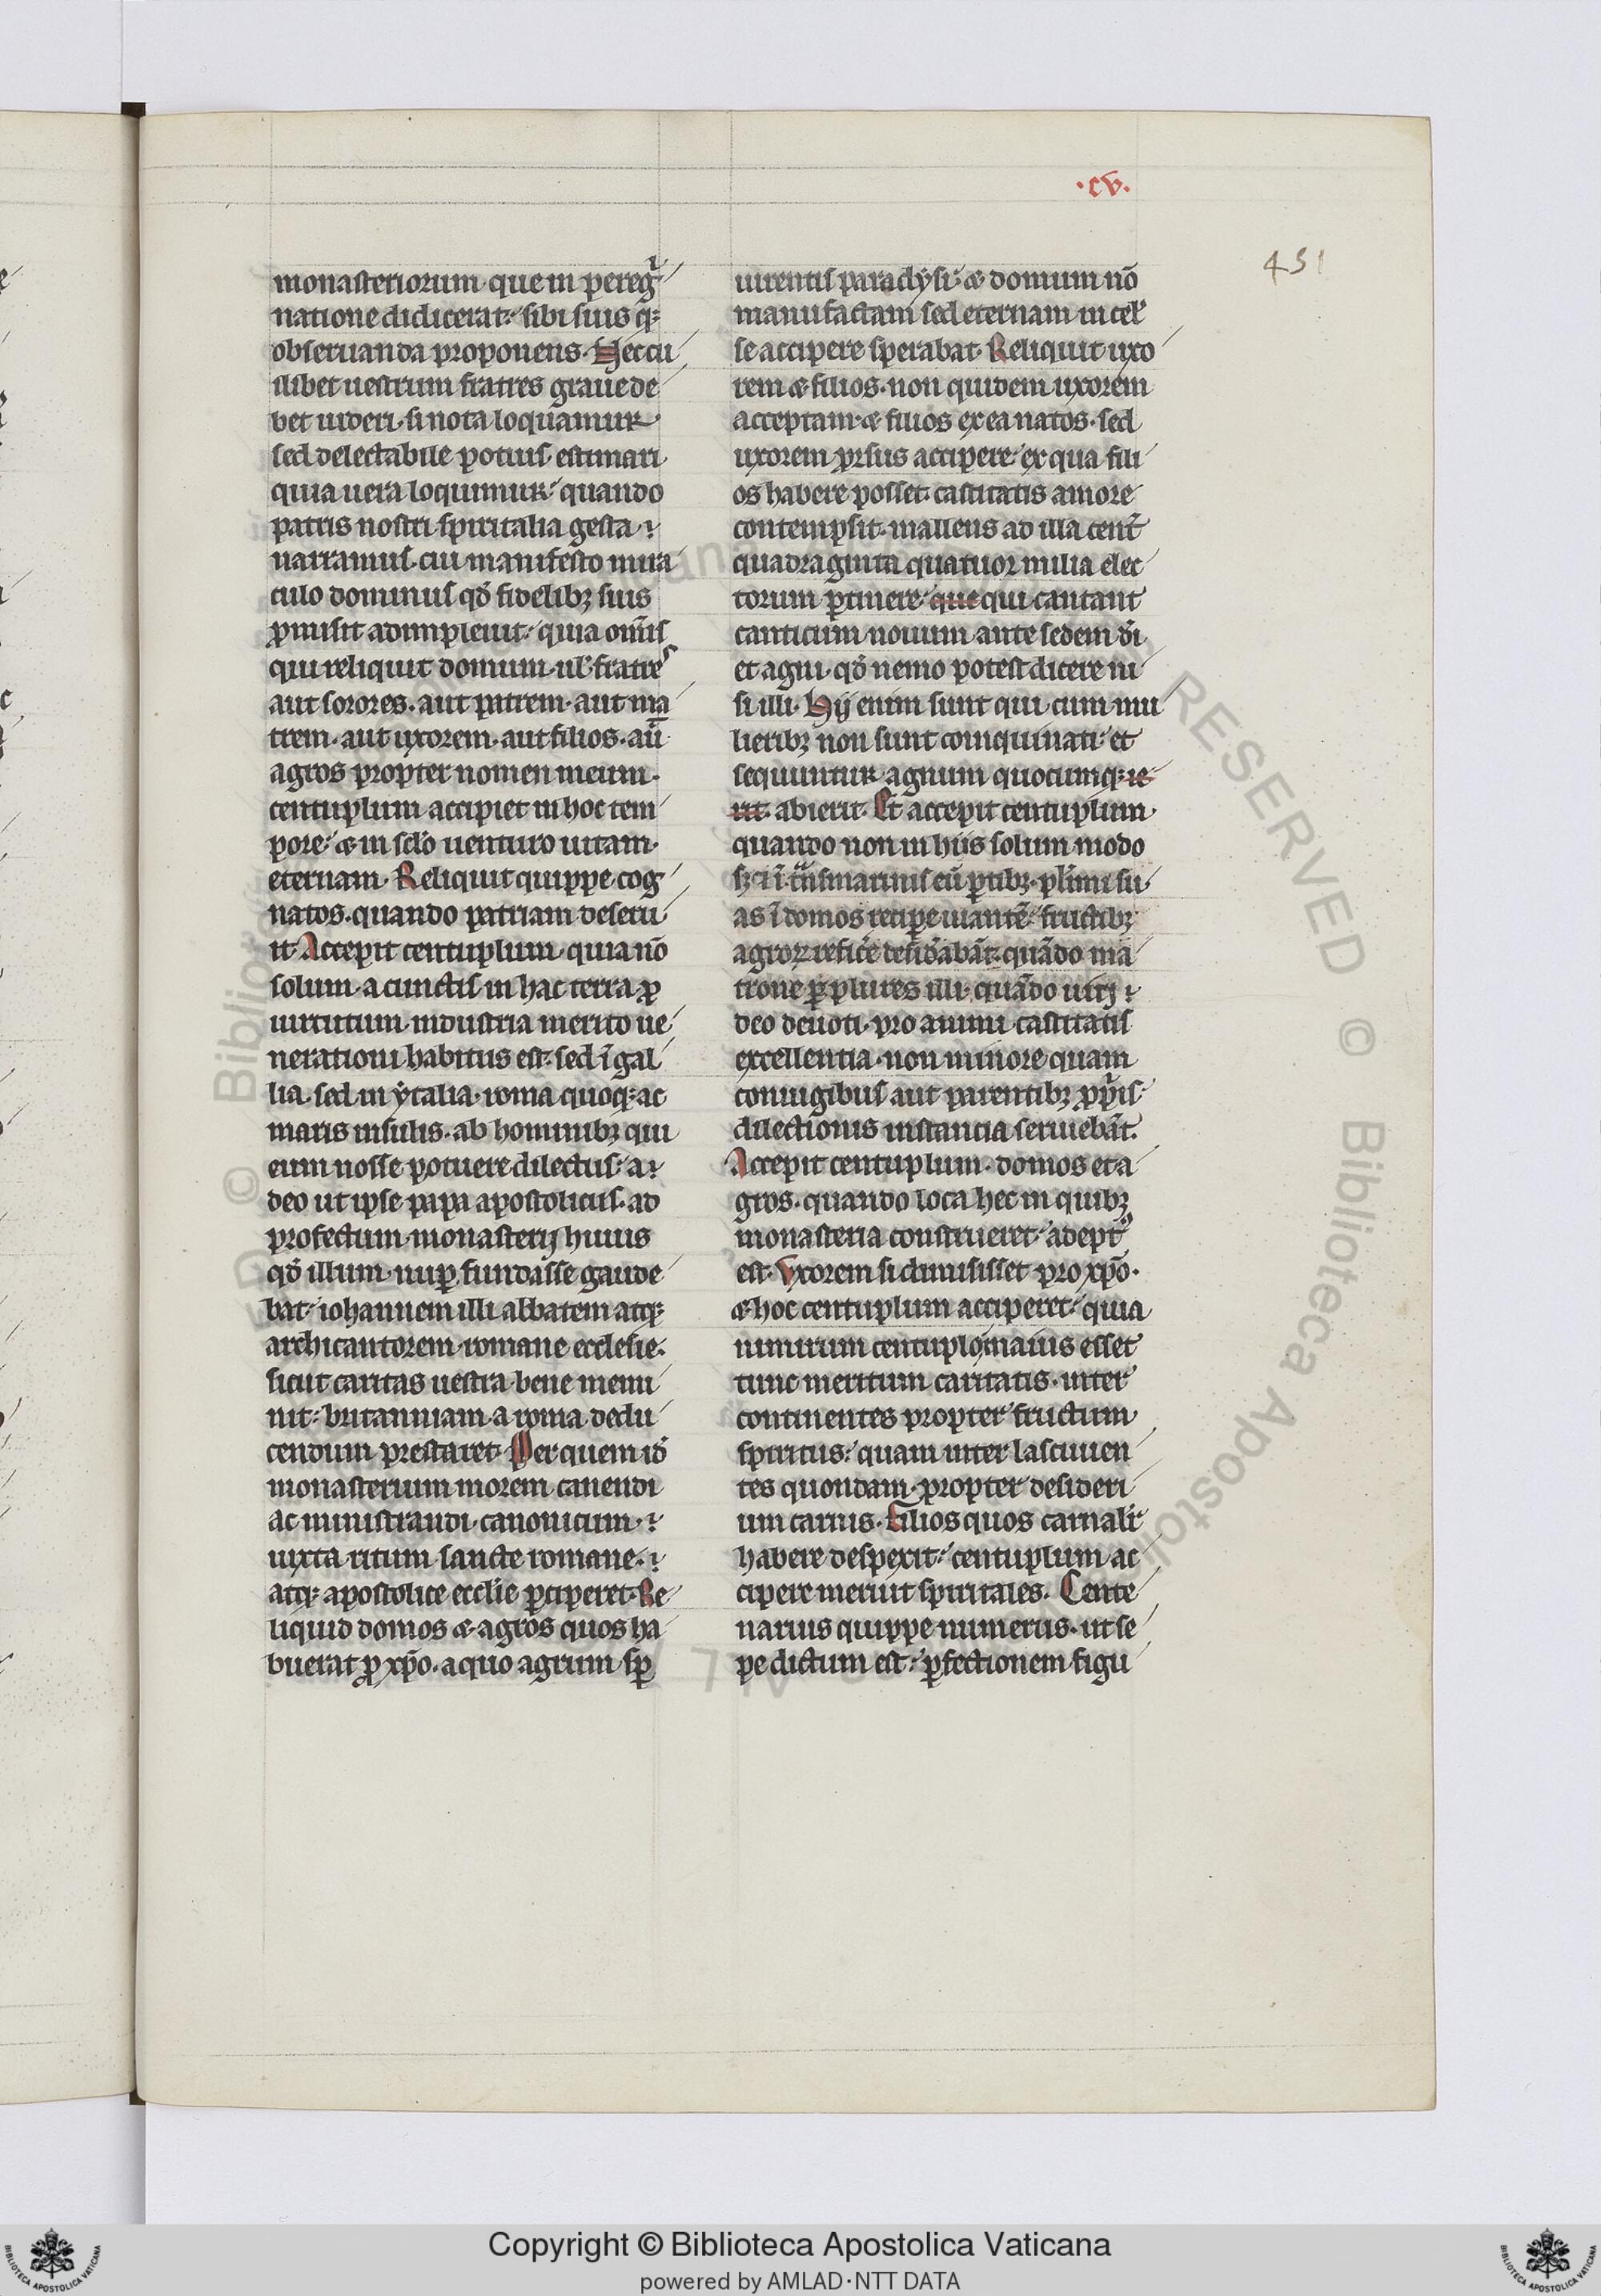 ·cv·
451
monasteriorum·que in peregͥ
natione didicerat·sibi suis q̨ꝫ
obseruanda proponens·Hec cu
ilibet uestrum fratres graue de
bet uideri·si nota loquamur·
sed delectabile potius estimari
quia uera loquimur·quando
patris nostri spiritalia gesta·
narramus·cui manifesto mira
culo dominus qd̓ fidelibꝫ suis
ꝓmisit adimpleuit·quia om̄is
qui reliquit domum·ul̓ fratres
aut sorores·aut patrem·aut ma
trem·aut uxorem·aut filios·au̅
agros propter nomen meum·
centuplum accipiet in hoc tem
pore·& in scl̓o uenturo uitam·
eternam·Reliquit quippe cog
natos·quando patriam deseru
it·Accepit centuplum·quia nō
solum·a cunctis in hac terra ꝓ
uirtutum·industria merito ue
nerationi habitus est·sed ī gal
lia·sed in ẏtalia·roma quoqꝫ ac
maris insulis·ab hominibꝫ qui
eum nosse potuere dilectus·a
deo ut ipse papa apostolicus·ad
profectum monasterij huius
qd̓ illum·nuꝑ fundasse gaude
bat·iohannem illi abbatem atqꝫ
archicantorem·romane ecclesie·
sicut caritas uestra bene memi
nit·britanniam·a roma dedu
cendum prestaret·Per quem id̓
monasterium morem canendi
ac ministrandi·canonicum·
iuxta ritum sancte romane·
atqꝫ apostolice eccl̓ie ꝑciperet·Re
liquid domos &·agros quos ha
buerat ꝓ xp̄o·a quo agrum sꝑ
uirentis paradẏsi·& domum nō
manufactam sed eternam in cel̓
se accipere sperabat·Reliquit uxo
rem & filios·non quidem uxorem
acceptam·& filios ex ea natos·sed
uxorem ꝓrsus accipere·ex qua fili
os habere posset·castitatis amore
contempsit·mallens ad illa cent̄
quadraginta quatuor milia elec
torum ꝑtinere·que qui cantant
canticum nouum ante sedem d̓i
et agni·qd̓ nemo potest dicere ni
si illi·Hij enim sunt qui cum mu
lieribꝫ non sunt coinquinati·et
sequuntur agnum quocumqꝫ ie
rit·abierit·Et accepit centuplum·
quando non in hiis solum modo
sꝫ & ī tͣnsmarinis eū ꝑtibꝫ·pl̓imi su
as ī domos reciꝑe iuantē·fructibꝫ
agroꝝ reficͤ desidͤabāt·quādo ma
trone ꝗꝑ plures illi·quādo uiri
deo deuoti·pro animi castitatis
excellentia·non minore quam
coniugibus aut parentibꝫ ꝓpͥis·
dilectionis instancia seruiebāt·
Accepit centuplum·domos et a
gros·quando loca hec in quibꝫ
monasteria construeret·adeptꝰ
est·Vxorem si dimisisset pro xp̄o·
& hoc centuplum acciperet·quia
nimirum centuplo maius esset
tunc meritum caritatis·inter
continentes propter fructum
spiritus·quam inter lasciuien
tes quondam·propter desideri
um carnis·Filios quos carnalit̓
habere despexit·centuplum ac
cipere meruit spiritales·Cente
narius quippe numerus·ut se
pe dictum est·ꝑfectionem figu
Copyright © Biblioteca Apostolica Vaticana
powered by AMLAD·NTT DATA